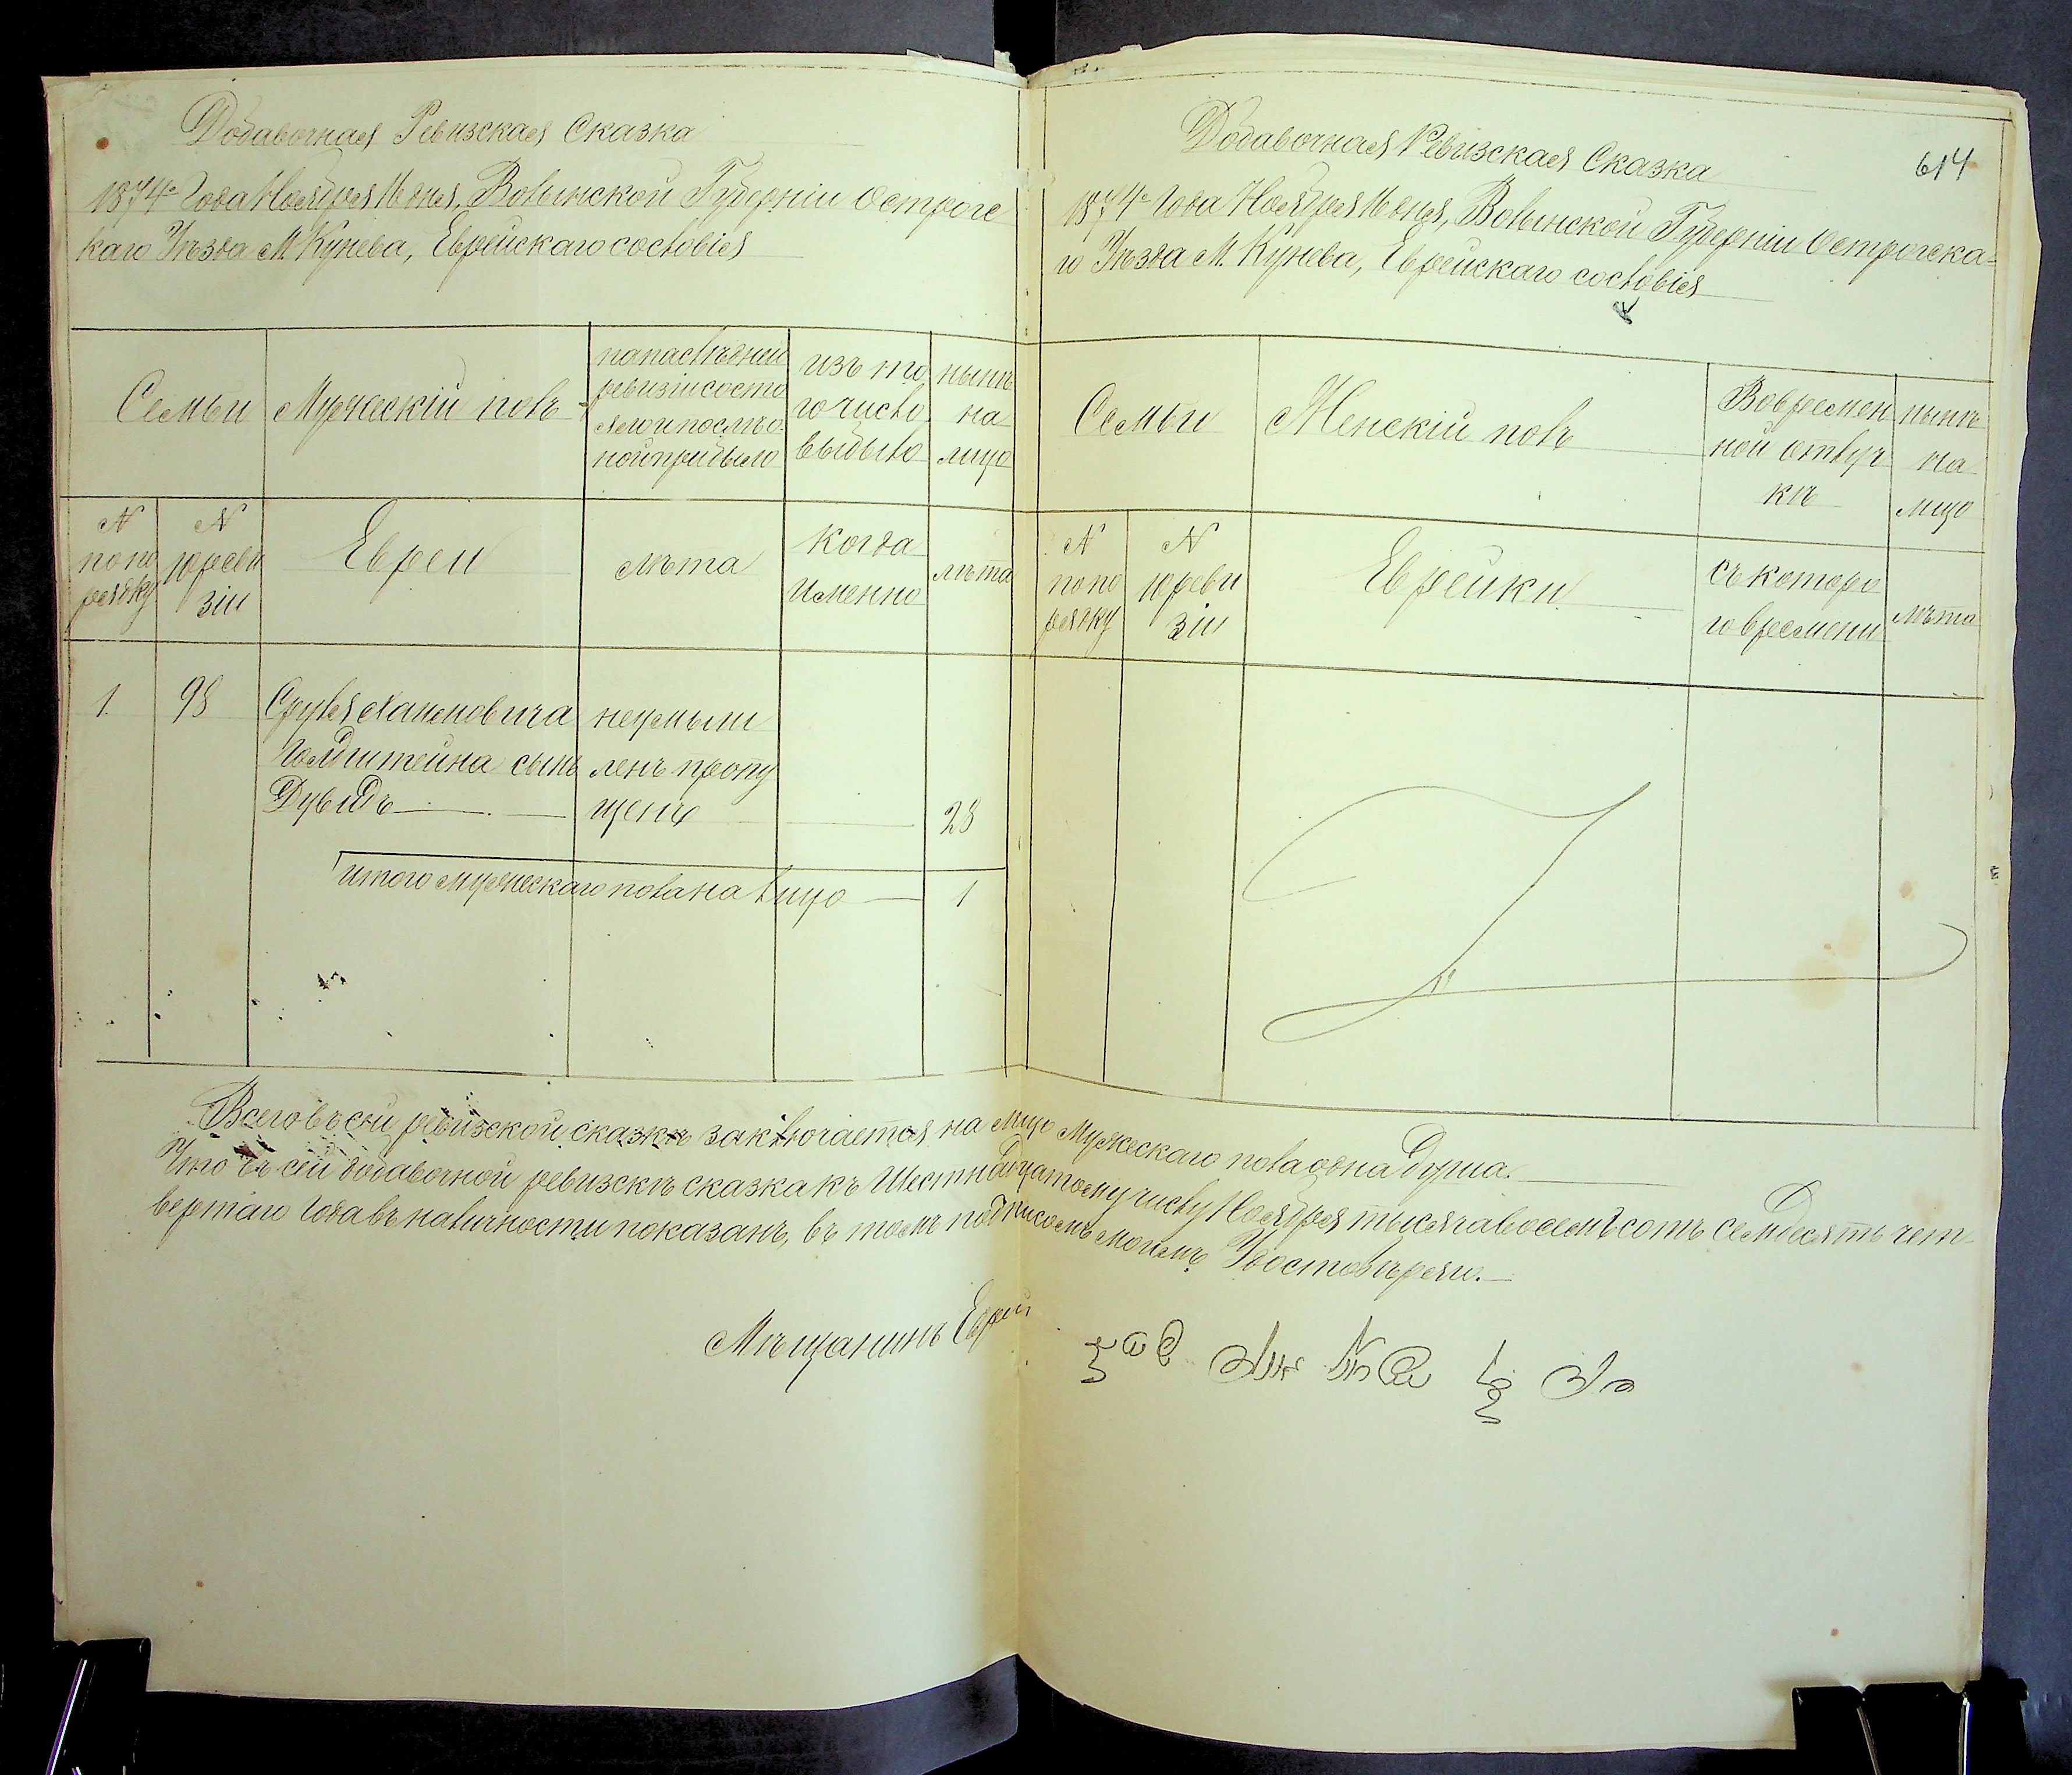 Добавочная Ревизская Сказка
1874 Года Ноября 16 дня, Волынской Губерніи Острогс
каго Уѣзда М. Кунева, Еврейскаго сословія
Семьи
Мужескій полъ
попаслѣдней
ревизіи состо
яло и послѣ о
ной прибыло
изъ то
го число
выбыло
нынѣ
на
лицо
N
по по
рядку
N
10 реви
зіи
Евреи
лѣта
когда
именно
лѣта
1.
98
Сруля
Голдштейна сынъ
Дувидъ
неумышл
ленъ пропу
щенъ
28
итого мужескаго пола на лицо
1
Добавочная Ревизская Сказка
614
1874 Года Ноября 16 дня, Волынской Губерніи Острогска-
го Уѣзда М. Кунева, Еврейскаго сословія
Семьи
Женскій полъ
Вовремен
ной отлуч
кѣ
нынѣ
на
лицо
N
по по
рядку
N
10 реви
зіи
Еврейки
съ которо
го времени
лѣта
Всего въ сей ревизской сказкѣ заключается на лицо мужескаго пола одна Душа.
Что въ сей добавочной ревизскѣ сказка къ Шестнадцатому числу Ноября тысяча восемъ сотъ семдесятъ чет
вертаго Года въ наличности показанъ, въ томъ подписомъ моимъ Удостовѣряю.
Мѣщанинъ Еврей